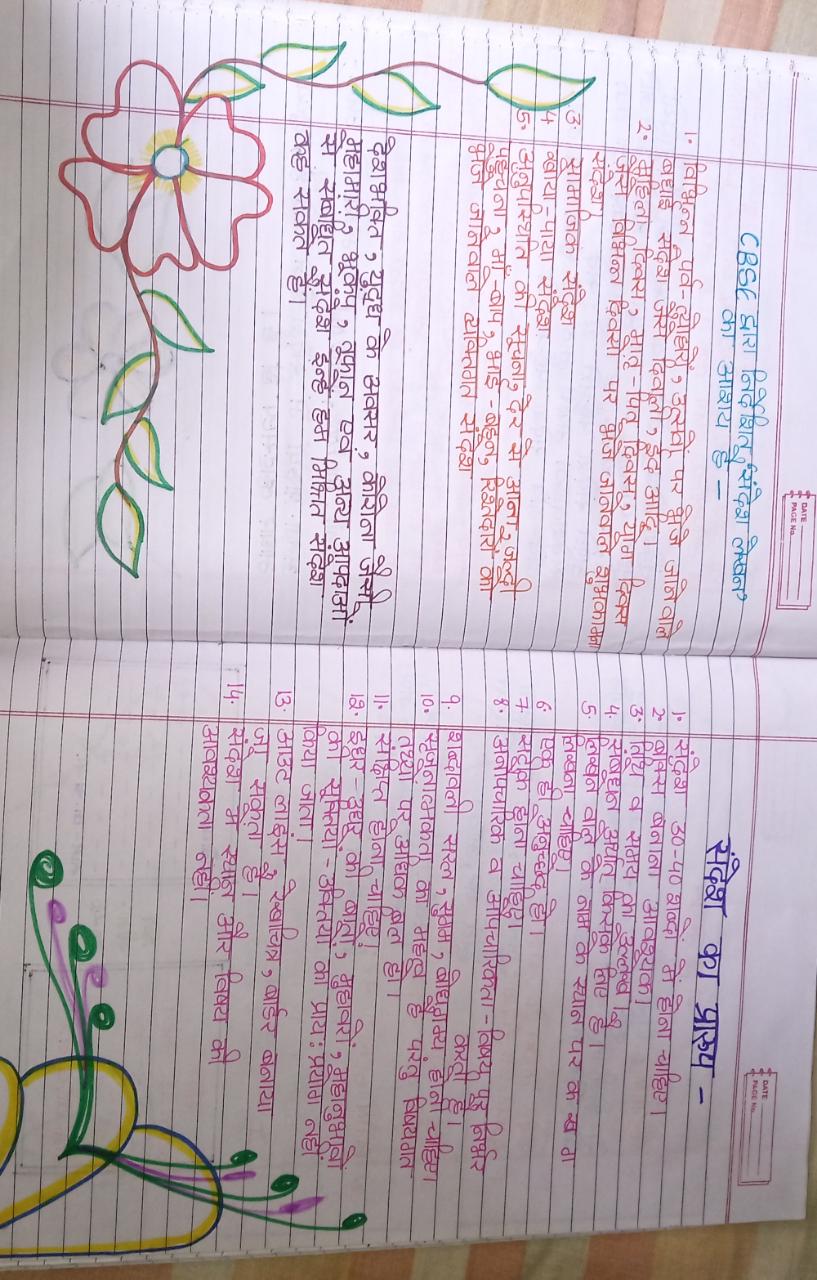 DATE
PAGE No.
CBSE द्वारा निर्देशित 'संदेश लेखन'
का आशय है -
1. विभिन्न पर्व-त्योहारों, उत्सवों पर भेजे जानेवाले
बधाई संदेश जैसे दिवाली, ईद आदि।
2. महिला दिवस, मातृ-पितृ दिवस, योग दिवस
जैसे विभिन्न दिवसों पर भेजे जानेवाले शुभकामना
संदेश
3. सामाजिक संदेश
4. खोया-पाया संदेश
5. अनुपस्थिति की सूचना, देर से आना, जल्दी
पहुँचना, माँ-बाप, भाई-बहन, रिश्तेदारों को
भेजे जानेवाले व्यक्तिगत संदेश
देशभक्ति, युद्ध के अवसर, कोरोना जैसी
महामारी, भूकंप, तूफान एवं अन्य आपदाओं
से संबंधित संदेश इन्हें हम मिश्रित संदेश
कह सकते हैं।
DATE
PAGE No.
संदेश का प्रारूप -
1. संदेश 30-40 शब्दों में होना चाहिए।
2. बॉक्स बनाना आवश्यक।
3. तिथि व समय का उल्लेख।
4. संबोधन अर्थात् किसके लिए है।
5. लिखने वाले के नाम के स्थान पर क ख ग
लिखना चाहिए।
6. एक ही अनुच्छेद हो।
7. सटीक होना चाहिए।
8. अनौपचारिक व औपचारिकता - विषय पर निर्भर
करता है।
9. शब्दावली सरल, सुगम, बोधगम्य होनी चाहिए।
10. सृजनात्मकता का महत्व है परंतु विषयगत
तथ्यों पर अधिक बल हो।
11. संक्षिप्त होना चाहिए।
12. इधर-उधर की बातों, मुहावरों, महानुभावों
की सूक्तियों-उक्तियों का प्रायः प्रयोग नहीं
किया जाता।
13. आउट लाइंस, रेखाचित्र, बॉर्डर बनाया
जा सकता है।
14. संदेश में स्थान और विषय की
आवश्यकता नहीं।